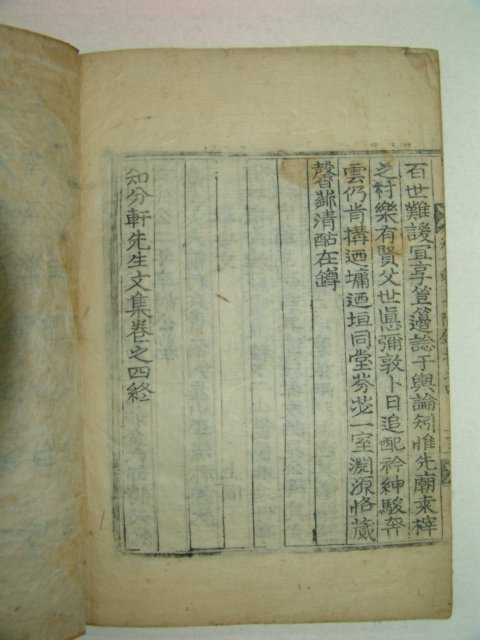 百世難諼宜享豆籩諗于輿論矧惟先廟桑梓
之村樂有賢父世嵬彌敦卜日追配衿紳駿奔
雲仍肯搆迺墉迺垣同堂芬苾一室淵源恪薦
馨香鄙淸酤在罇
知分軒先生文集卷之四終